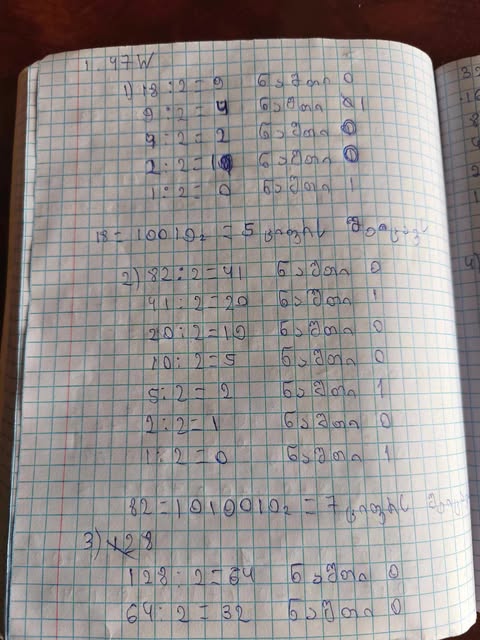 1.47W
1) 18 : 2 = 9 ნაშთი 0
9 : 2 = 4 ნაშთი 1
4 : 2 = 2 ნაშთი 0
2 : 2 = 1 ნაშთი 0
1 : 2 = 0 ნაშთი 1
18 = 10010₂ = 5 ციფრს შეიცავს
2) 82 : 2 = 41 ნაშთი 0
41 : 2 = 20 ნაშთი 1
20 : 2 = 10 ნაშთი 0
10 : 2 = 5 ნაშთი 0
5 : 2 = 2 ნაშთი 1
2 : 2 = 1 ნაშთი 0
1 : 2 = 0 ნაშთი 1
82 = 1010010₂ = 7 ციფრს
3) 128
128 : 2 = 64 ნაშთი 0
64 : 2 = 32 ნაშთი 0